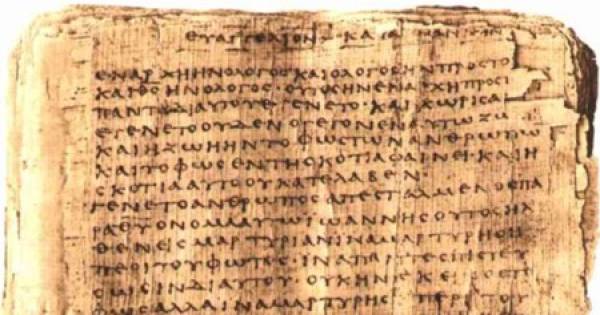 ΕΥΑΓΓΕΛΙΟΝ ΚΑΤΑ
ΕΝ ΑΡΧΗ ΗΝ Ο ΛΟΓΟΣ ΚΑΙ Ο ΛΟΓΟΣ ΗΝ ΠΡΟΣ ΤΟ
ΚΑΙ ΘΣ ΗΝ Ο ΛΟΓΟΣ · ΟΥΤΟΣ ΗΝ ΕΝ ΑΡΧΗ ΠΡΟΣ
ΠΑΝΤΑ ΔΙ ΑΥΤΟΥ ΕΓΕΝΕΤΟ · ΚΑΙ ΧΩΡΙΣ Α
ΕΓΕΝΕΤΟ ΟΥΔΕ ΕΝ Ο ΓΕΓΟΝΕΝ ΕΝ ΑΥΤΩ ΖΩ
ΚΑΙ Η ΖΩΗ ΗΝ ΤΟ ΦΩΣ ΤΩΝ ΑΝΘΡΩΠΩ
ΚΑΙ ΤΟ ΦΩΣ ΕΝ ΤΗ ΣΚΟΤΙΑ ΦΑΙΝΕΙ · ΚΑΙ Η
ΣΚΟΤΙΑ ΑΥΤΟ ΟΥ ΚΑΤΕΛΑΒΕΝ ·
ΓΕΝΕΤΟ ΑΝΘΡΩΠΟΣ ΑΠΕΣΤΑΛΜΕΝΟΣ ΠΑ
ΡΑ ΘΥ ΟΝΟΜΑ ΑΥΤΩ ΙΩΑΝΝΗΣ ΟΥΤΟΣ ΗΛ
ΘΕΝ ΕΙΣ ΜΑΡΤΥΡΙΑΝ ΙΝΑ ΜΑΡΤΥΡΗΣΗ
ΠΕΡΙ ΤΟΥ ΦΩΤΟΣ · ΙΝΑ ΠΑΝΤΕΣ ΠΙΣΤΕΥ
ΣΩΣΙΝ ΔΙ ΑΥΤΟΥ · ΟΥΚ ΗΝ ΕΚΕΙΝΟΣ ΤΟ
ΦΩΣ ΑΛΛΑ ΙΝΑ ΜΑΡΤΥΡΗΣΗ ΠΕΡΙ ΤΟΥ